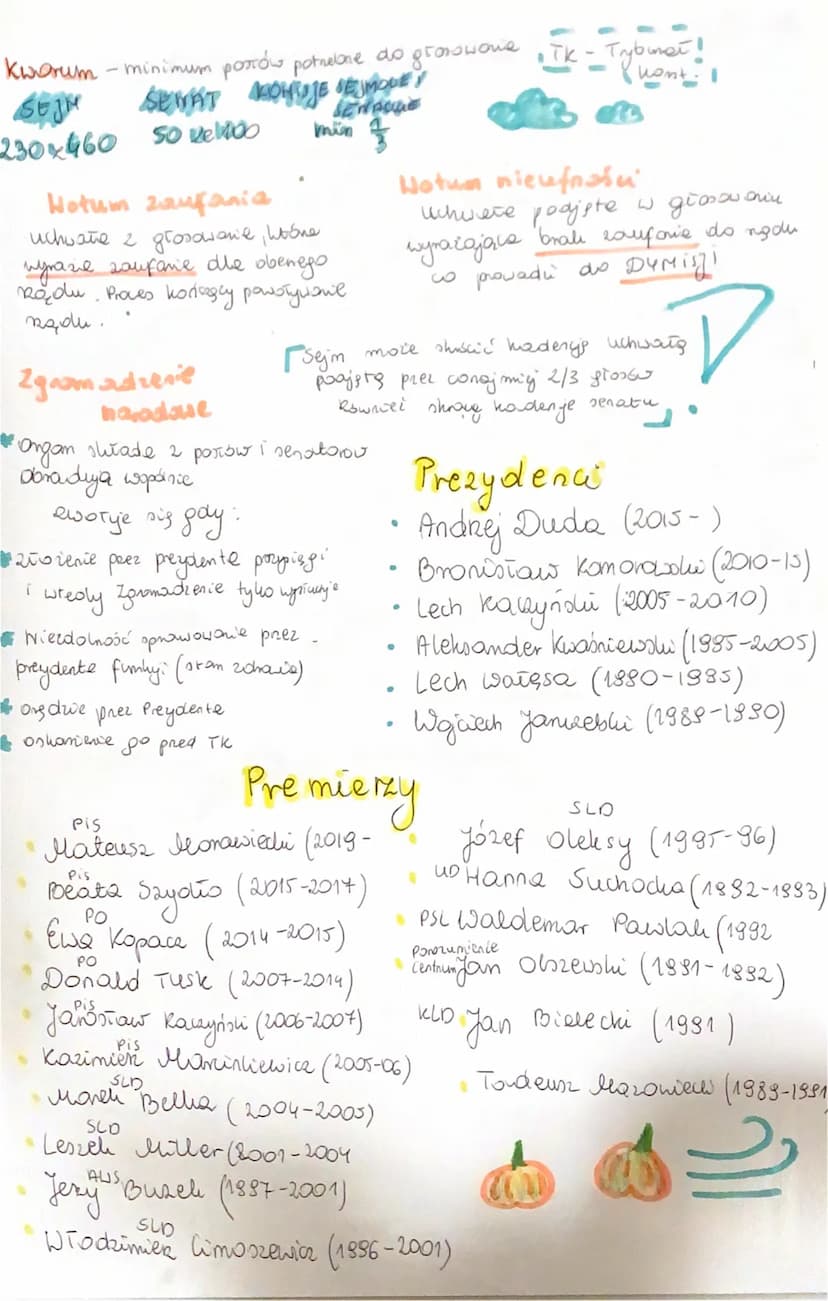 Kworum - minimum posłów potrzebne do głosowania
TK - Trybunał
Konst.
SEJM
SENAT
KOMISJE SEJMOWE/
SENACKIE
230 z 460
50 ze 100
min 1/3
Wotum zaufania
uchwała z głosowania, która
wyraża zaufanie dla obecnego
rządu. Proces kończący powoływanie
rządu.
Wotum nieufności
Uchwała podjęta w głosowaniu
wyrażająca brak zaufania do rządu
co prowadzi do DYMISJI
Sejm może skrócić kadencję uchwałą
podjętą przez conajmniej 2/3 głosów
Również skraca kadencję senatu
Zgromadzenie
narodowe
Organ składa z posłów i senatorów
obradują wspólnie
zwołuje się gdy:
złożenie przez prezydenta przysięgi
i wtedy Zgromadzenie tylko
Niezdolność sprawowania przez
prezydenta funkcji (stan zdrowia)
orędzie przez Prezydenta
oskarżenie go przed TK
Prezydenci
• Andrzej Duda (2015- )
• Bronisław Komorowski (2010-15)
• Lech Kaczyński (2005-2010)
• Aleksander Kwaśniewski (1995-2005)
• Lech Wałęsa (1990-1995)
• Wojciech Jaruzelski (1989-1990)
Premierzy
PiS
• Mateusz Morawiecki (2019-
PiS
• Beata Szydło (2015-2017)
PO
• Ewa Kopacz (2014-2015)
PO
• Donald Tusk (2007-2014)
PiS
• Jarosław Kaczyński (2006-2007)
PiS
• Kazimierz Marcinkiewicz (2005-06)
SLD
• Marek Belka (2004-2005)
SLD
• Leszek Miller (2001-2004
AWS
• Jerzy Buzek (1997-2001)
SLD
• Włodzimierz Cimoszewicz (1996-2001)
SLD
• Józef Oleksy (1995-96)
• UD Hanna Suchocka (1992-1993)
• PSL Waldemar Pawlak (1992
Porozumienie
• Centrum Jan Olszewski (1991-1992)
KLD • Jan Bielecki (1991)
• Tadeusz Mazowiecki (1989-1991